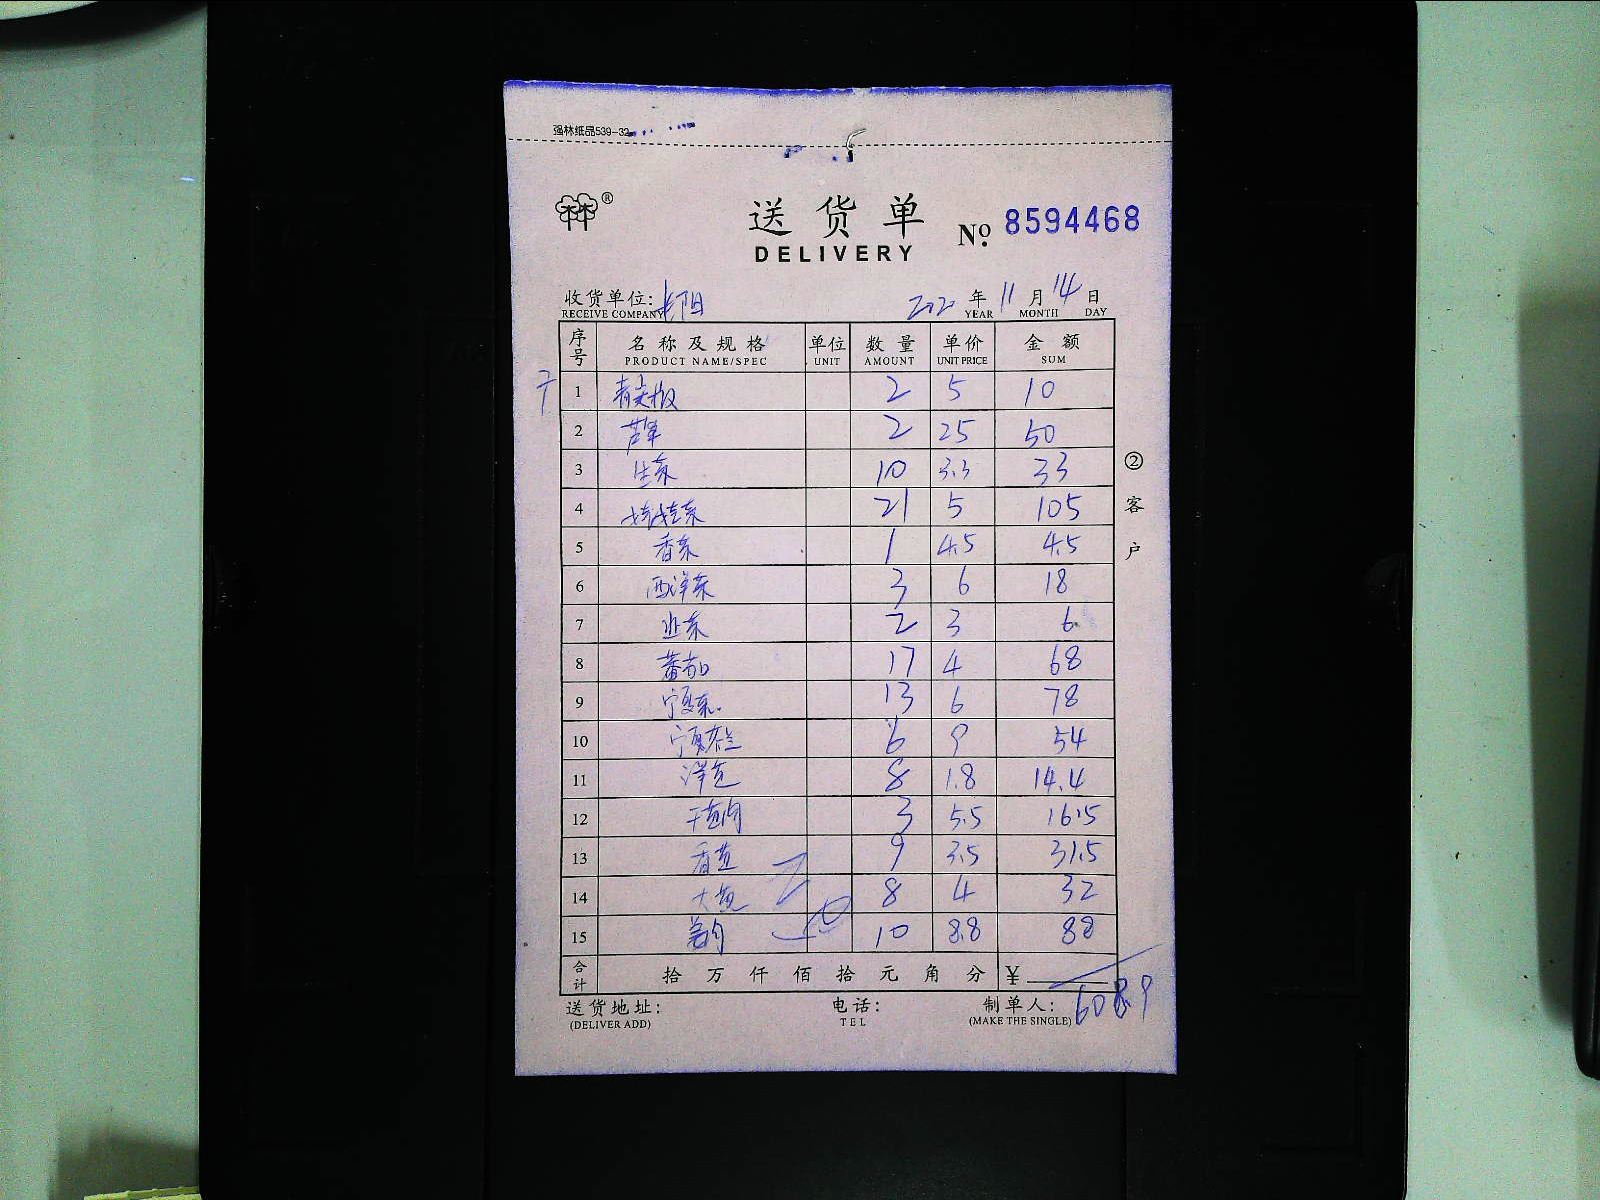 强林纸品539-32
林®
送货单
DELIVERY
No. 8594468
收货单位: 2020 年 11 月 14 日
RECEIVE COMPANY YEAR MONTH DAY
序号 名称及规格 单位 数量 单价 金额
PRODUCT NAME/SPEC UNIT AMOUNT UNIT PRICE SUM
1 2 5 10
2 芦笋 2 25 50
3 生菜 10 3.3 33
4 21 5 105
5 香菜 1 4.5 4.5
6 西洋菜 3 6 18
7 韭菜 2 3 6
8 蕃茄 17 4 68
9 宁夏菜 13 6 78
10 宁夏芥兰 6 9 54
11 洋葱 8 1.8 14.4
12 干葱肉 3 5.5 16.5
13 香葱 9 3.5 31.5
14 大葱 8 4 32
15 姜肉 10 8.8 88
合计 拾 万 仟 佰 拾 元 角 分 ¥
608.9
送货地址: 电话: 制单人:
(DELIVER ADD) TEL (MAKE THE SINGLE)
②客户